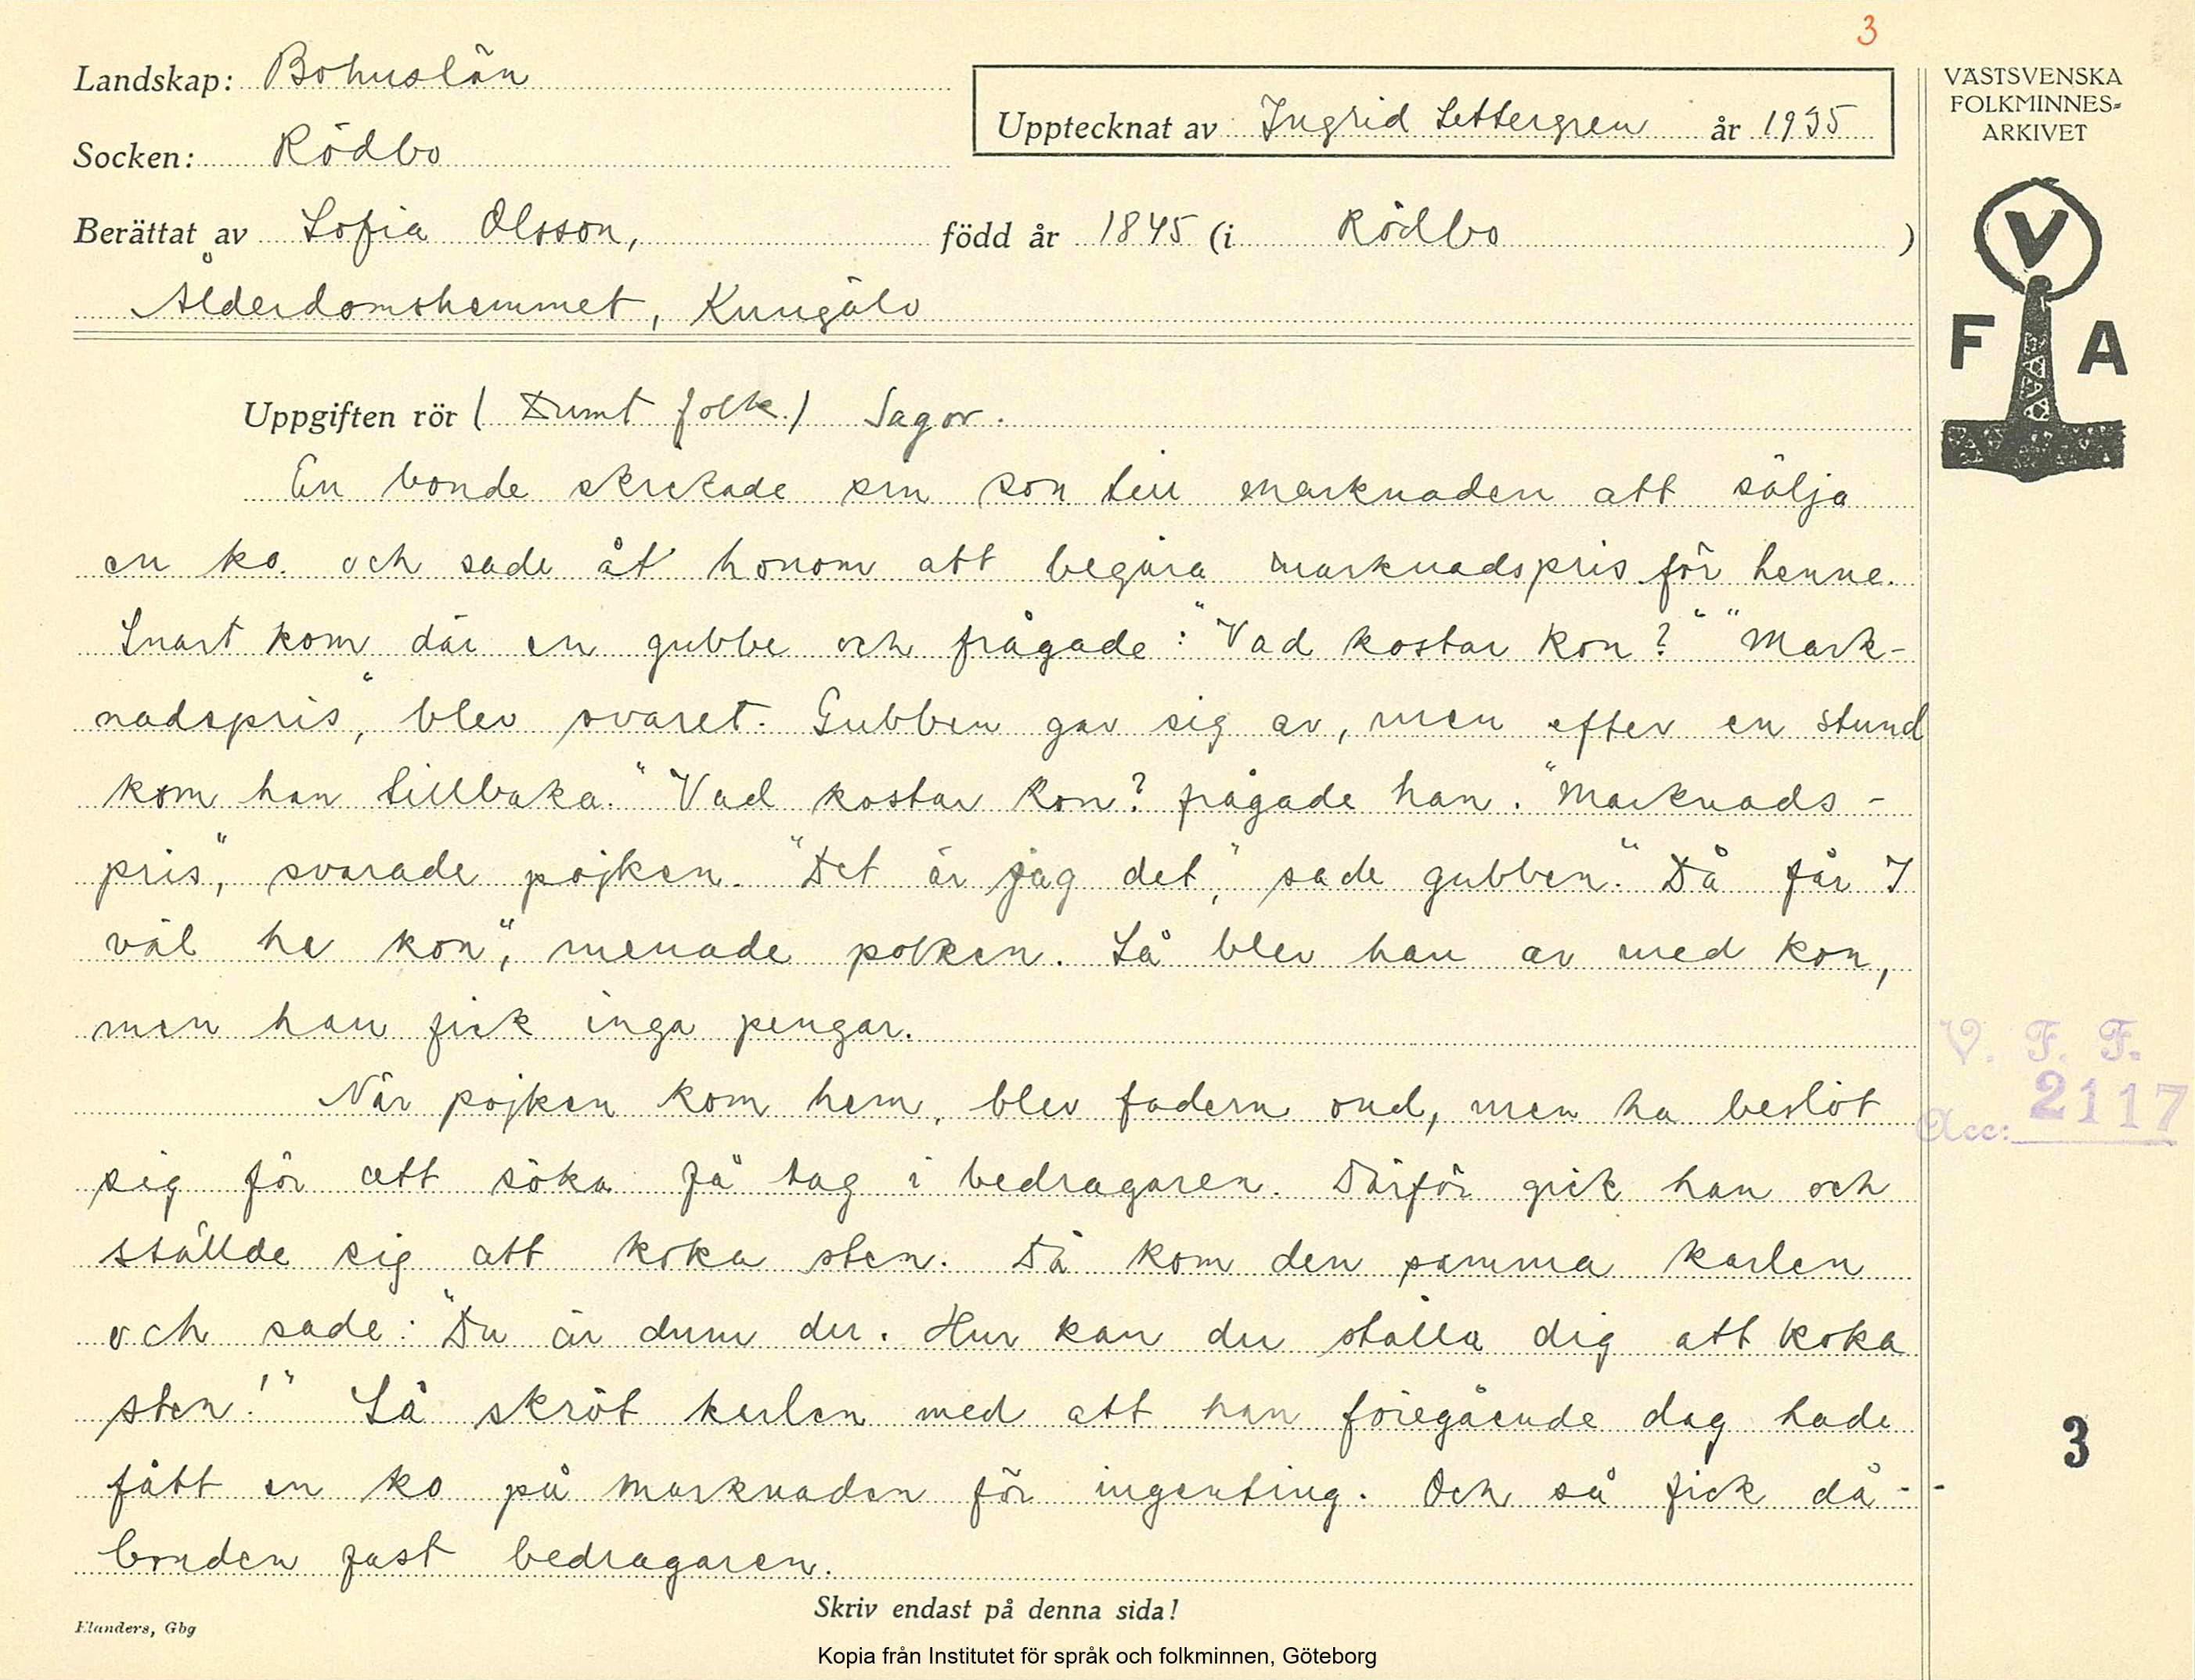 3
Landskap: Bohuslän
Socken: Rödbo
Upptecknat av Ingrid Settergren år 1935
VÄSTSVENSKA
FOLKMINNES-
ARKIVET
V
F A
Berättat av Sofia Olsson, född år 1845 (i Rödbo )
Ålderdomshemmet, Kungälv
Uppgiften rör ( Dumt folk.) Sagor.
En bonde skickade sin son till marknaden att sälja
en ko och sade åt honom att begära marknadspris för henne.
Snart kom där en gubbe och frågade: "Vad kostar kon?" "Mark-
nadspris", blev svaret. Gubben gav sig av, men efter en stund
kom han tillbaka. "Vad kostar kon? frågade han. "Marknads-
pris", svarade pojken. "Det är jag det", sade gubben. "Då får I
väl ha kon", menade pojken. Så blev han av med kon,
men han fick inga pengar.
När pojken kom hem, blev fadern ond, men ha beslöt
sig för att söka få tag i bedragaren. Därför gick han och
ställde sig att koka sten. Då kom den samma karlen
och sade: "Du är dum du. Hur kan du ställa dig att koka
sten!" Så skröt karlen med att han föregående dag hade
fått en ko på marknaden för ingenting. Och så fick då -
bonden fast bedragaren.
V. F. F.
Acc: 2117
3
Skriv endast på denna sida!
Elanders, Gbg
Kopia från Institutet för språk och folkminnen, Göteborg